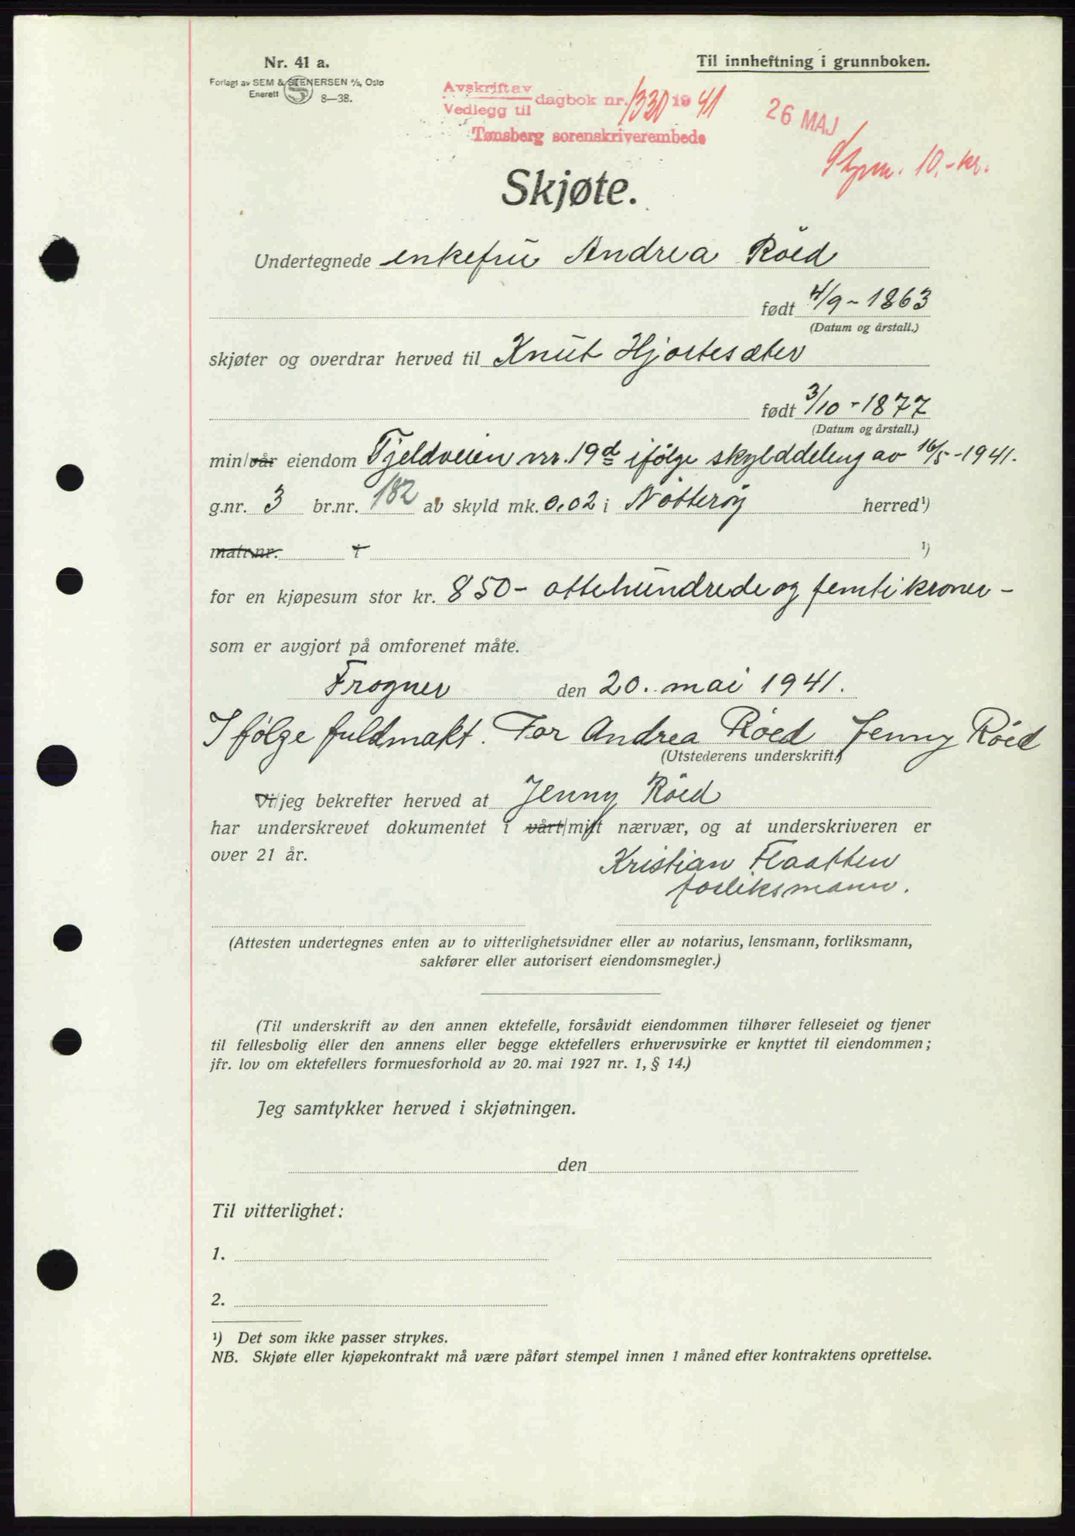 Nr. 41 a.
Forlagt av SEM & STENERSEN A/S, Oslo
Enerett 8—38.
Til innheftning i grunnboken.
Avskrift av
Vedlegg til dagbok nr. 1330 1941
Tønsberg sorenskriverembede
26 MAJ
10,- kr.
Skjøte.
Undertegnede enkefru Andrea Röed
født 4/9 - 1863
(Datum og årstall.)
skjøter og overdrar herved til Knut Hjortesæter
født 3/10 - 1877
(Datum og årstall.)
min/vår eiendom Fjeldveien nr. 19d ifölge skylddeling av 16/5-1941.
g.nr. 3 br.nr. 182 av skyld mk. 0,02 i Nötteröy herred¹)
matr.nr. i ¹)
for en kjøpesum stor kr. 850- ottehundrede og femti kroner -
som er avgjort på omforenet måte.
Frogner den 20. mai 1941.
Ifølge fuldmakt. For Andrea Röed Jenny Röed
(Utstederens underskrift.)
Vi/jeg bekrefter herved at Jenny Röed
har underskrevet dokumentet i vårt/mitt nærvær, og at underskriveren er
over 21 år.
Kristian Flaatten
forliksmann.
(Attesten undertegnes enten av to vitterlighetsvidner eller av notarius, lensmann, forliksmann,
sakfører eller autorisert eiendomsmegler.)
(Til underskrift av den annen ektefelle, forsåvidt eiendommen tilhører felleseiet og tjener
til fellesbolig eller den annens eller begge ektefellers erhvervsvirke er knyttet til eiendommen;
jfr. lov om ektefellers formuesforhold av 20. mai 1927 nr. 1, § 14.)
Jeg samtykker herved i skjøtningen.
den
Til vitterlighet:
1.
2.
¹) Det som ikke passer strykes.
NB. Skjøte eller kjøpekontrakt må være påført stempel innen 1 måned efter kontraktens oprettelse.